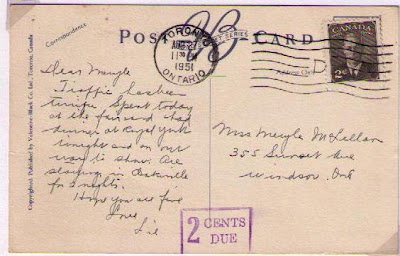 Correspondence
POST CARD
TORONTO
AUG 27
11 30 AM
1951
ONTARIO
CANADA
2¢
Address Only
Copyrighted. Published by Valentine-Black Co. Ltd., Toronto, Canada
Dear Meryle
Traffic has been
terrific. Spent today
at the fair and had
dinner at Royal York
tonight and on our
way to show. Are
staying in Oakville
for 2 nights.
Hope you are fine
Love
Sie
Miss Meryle McLellan
355 Sunset Ave
Windsor, Ont
2 CENTS
DUE